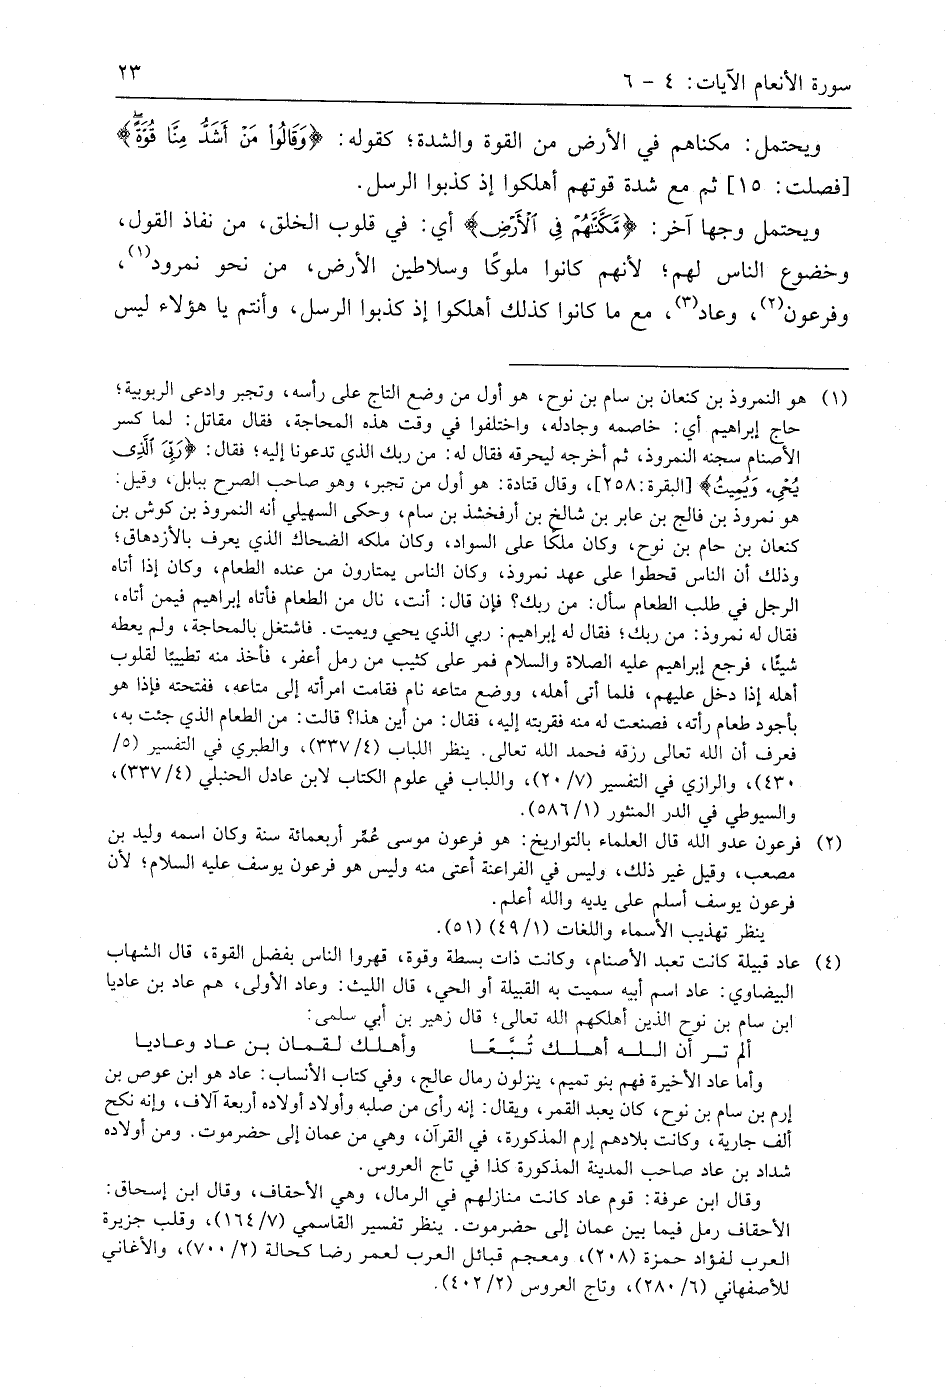 سورة الأنعام الآيات: ٤ - ٦
٢٣
ويحتمل: مكناهم في الأرض من القوة والشدة؛ كقوله: ﴿وَقَالُواْ مَنْ أَشَدُّ مِنَّا قُوَّةً﴾
[فصلت: ١٥] ثم مع شدة قوتهم أهلكوا إذ كذبوا الرسل.
ويحتمل وجها آخر: ﴿مَّكَّنَّٰهُمْ فِي ٱلْأَرْضِ﴾ أي: في قلوب الخلق، من نفاذ القول،
وخضوع الناس لهم؛ لأنهم كانوا ملوكًا وسلاطين الأرض، من نحو نمرود(١)،
وفرعون(٢)، وعاد(٣)، مع ما كانوا كذلك أهلكوا إذ كذبوا الرسل، وأنتم يا هؤلاء ليس
(١) هو النمروذ بن كنعان بن سام بن نوح، هو أول من وضع التاج على رأسه، وتجبر وادعى الربوبية؛
حاج إبراهيم أي: خاصمه وجادله، واختلفوا في وقت هذه المحاجة، فقال مقاتل: لما كسر
الأصنام سجنه النمروذ، ثم أخرجه ليحرقه فقال له: من ربك الذي تدعونا إليه؛ فقال: ﴿رَبِّيَ ٱلَّذِى
يُحْىِۦ وَيُمِيتُ﴾ [البقرة:٢٥٨]، وقال قتادة: هو أول من تجبر، وهو صاحب الصرح ببابل، وقيل:
هو نمروذ بن فالج بن عابر بن شالخ بن أرفخشذ بن سام، وحكى السهيلي أنه النمروذ بن كوش بن
كنعان بن حام بن نوح، وكان ملكًا على السواد، وكان ملكه الضحاك الذي يعرف بالأزدهاق؛
وذلك أن الناس قحطوا على عهد نمروذ، وكان الناس يمتارون من عنده الطعام، وكان إذا أتاه
الرجل في طلب الطعام سأل: من ربك؟ فإن قال: أنت، نال من الطعام فأتاه إبراهيم فيمن أتاه،
فقال له نمروذ: من ربك؛ فقال له إبراهيم: ربي الذي يحيي ويميت. فاشتغل بالمحاجة، ولم يعطه
شيئًا، فرجع إبراهيم عليه الصلاة والسلام فمر على كثيب من رمل أعفر، فأخذ منه تطييبًا لقلوب
أهله إذا دخل عليهم، فلما أتى أهله، ووضع متاعه نام فقامت امرأته إلى متاعه، ففتحته فإذا هو
بأجود طعام رأته، فصنعت له منه فقربته إليه، فقال: من أين هذا؟ قالت: من الطعام الذي جئت به،
فعرف أن الله تعالى رزقه فحمد الله تعالى. ينظر اللباب (٤/ ٣٣٧)، والطبري في التفسير (٥/
٤٣٠)، والرازي في التفسير (٧/ ٢٠)، واللباب في علوم الكتاب لابن عادل الحنبلي (٤/ ٣٣٧)،
والسيوطي في الدر المنثور (١/ ٥٨٦).
(٢) فرعون عدو الله قال العلماء بالتواريخ: هو فرعون موسى عُمِّر أربعمائة سنة وكان اسمه وليد بن
مصعب، وقيل غير ذلك، وليس في الفراعنة أعتى منه وليس هو فرعون يوسف عليه السلام؛ لأن
فرعون يوسف أسلم على يديه والله أعلم.
ينظر تهذيب الأسماء واللغات (١/ ٤٩) (٥١).
(٤) عاد قبيلة كانت تعبد الأصنام، وكانت ذات بسطة وقوة، قهروا الناس بفضل القوة، قال الشهاب
البيضاوي: عاد اسم أبيه سميت به القبيلة أو الحي، قال الليث: وعاد الأولى، هم عاد بن عاديا
ابن سام بن نوح الذين أهلكهم الله تعالى؛ قال زهير بن أبي سلمى:
ألم تر أن الله أهلك تُبَّعًا وأهلك لقمان بن عاد وعاديا
وأما عاد الأخيرة فهم بنو تميم، ينزلون رمال عالج، وفي كتاب الأنساب: عاد هو ابن عوص بن
إرم بن سام بن نوح، كان يعبد القمر، ويقال: إنه رأى من صلبه وأولاد أولاده أربعة آلاف، وإنه نكح
ألف جارية، وكانت بلادهم إرم المذكورة، في القرآن، وهي من عمان إلى حضرموت. ومن أولاده
شداد بن عاد صاحب المدينة المذكورة كذا في تاج العروس.
وقال ابن عرفة: قوم عاد كانت منازلهم في الرمال، وهي الأحقاف، وقال ابن إسحاق:
الأحقاف رمل فيما بين عمان إلى حضرموت. ينظر تفسير القاسمي (٧/ ١٦٤)، وقلب جزيرة
العرب لفؤاد حمزة (٢٠٨)، ومعجم قبائل العرب لعمر رضا كحالة (٢/ ٧٠٠)، والأغاني
للأصفهاني (٦/ ٢٨٠)، وتاج العروس (٢/ ٤٠٢).